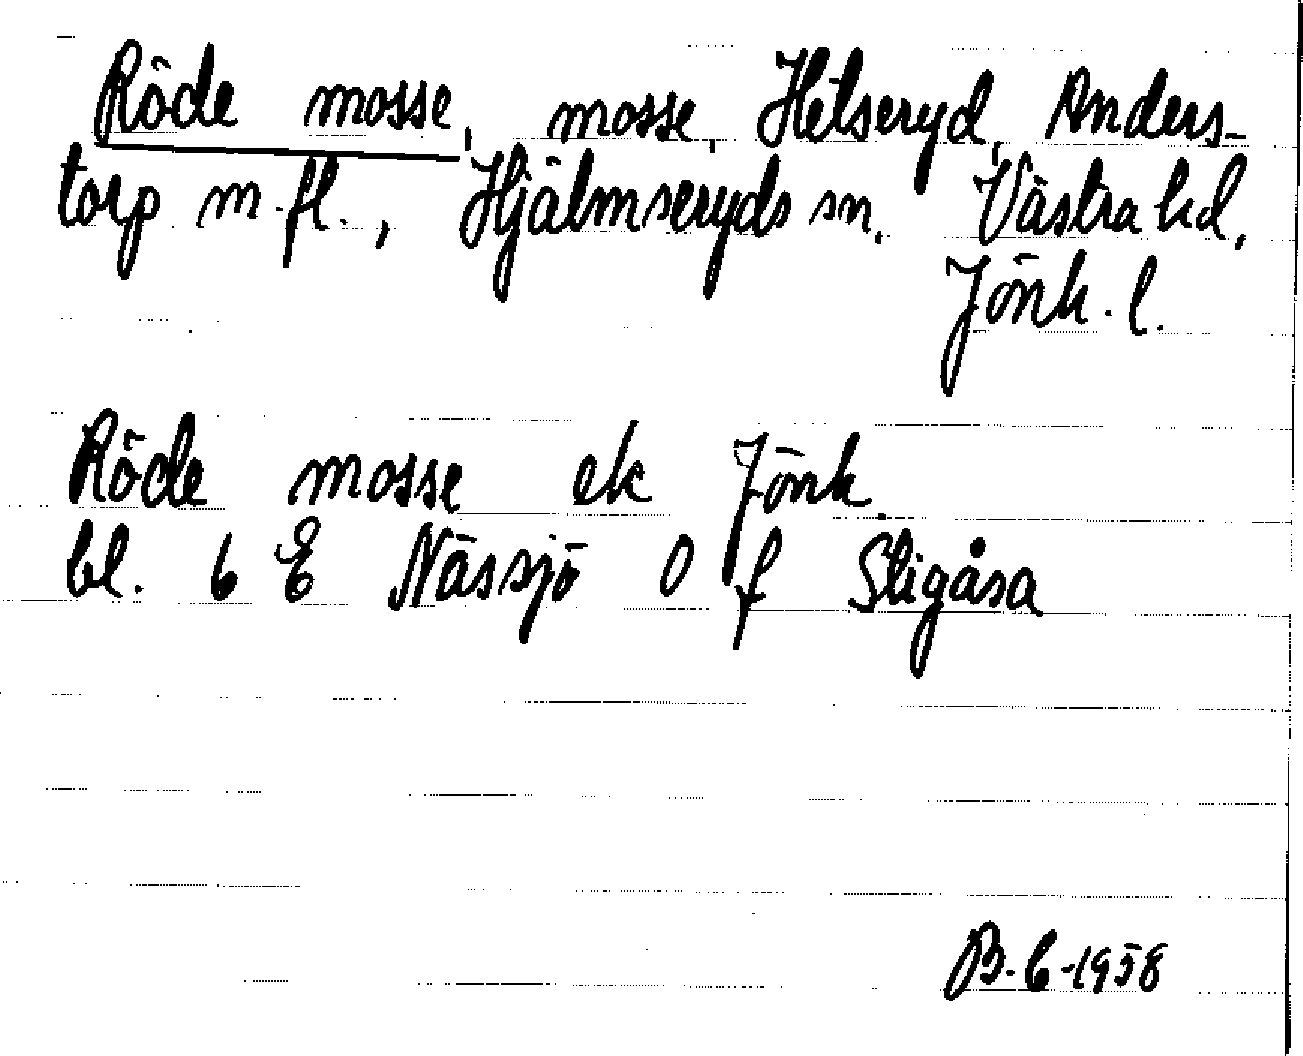 Röde mosse, mosse, Hetseryd, Anders-
torp m.fl., Hjälmseryds sn. Västra hd,
Jönk. l.
Röde mosse ek Jönk.
bl. 6 E Nässjö 0 f Stigåsa
B. C-1958